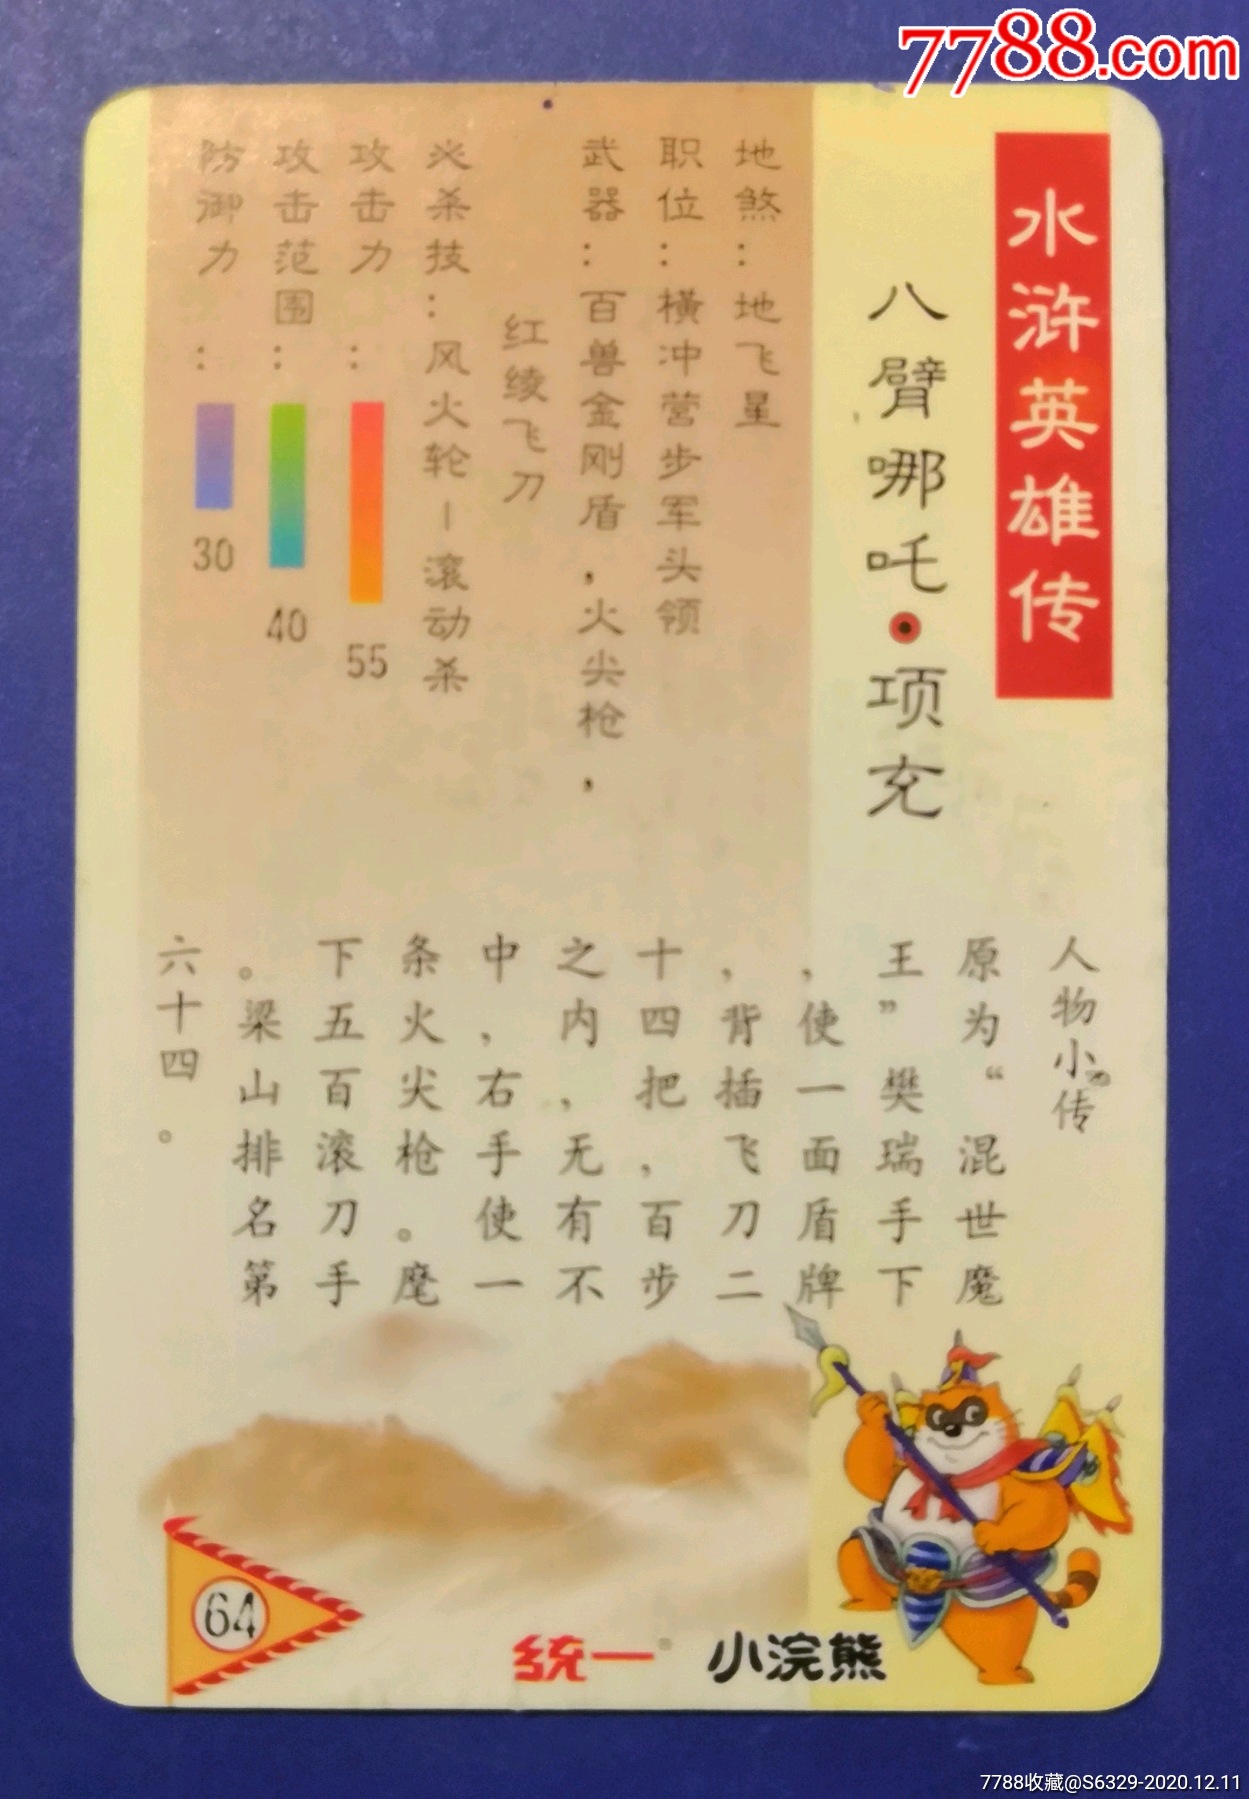 7788.com
水浒英雄传
八臂哪吒·项充
地煞：地飞星
职位：横冲营步军头领
武器：百兽金刚盾，火尖枪，
红绫飞刀
必杀技：风火轮－滚动杀
攻击力：55
攻击范围：40
防御力：30
人物小传
原为“混世魔
王”樊瑞手下
，使一面盾牌
，背插飞刀二
十四把，百步
之内，无有不
中，右手使一
条火尖枪。麾
下五百滚刀手
。梁山排名第
六十四。
64
统一 小浣熊
7788收藏@S6329-2020.12.11